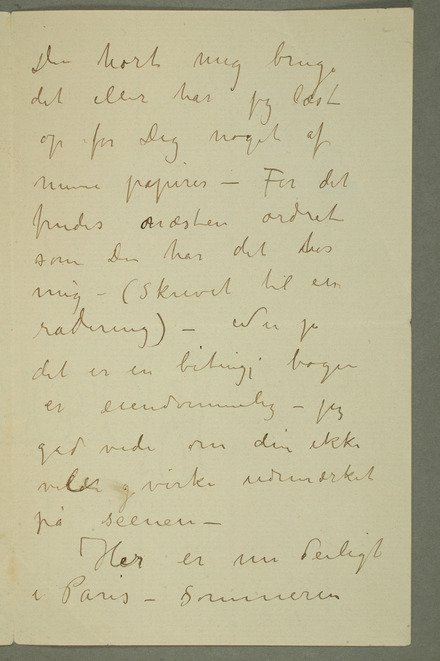 Du hørt mig bruge
det eller har jeg læst
op for Dig noget af
mine papirer – For det
findes næsten ordret
som Du har det hos
mig – (Skrevet til en
radering) – Nu ja
det er en biting; bogen
er eiendommelig – jeg
gad vide om din ikke
vilde virke udmærket
på scenen –
Her er nu deiligt
i Paris – Sommeren